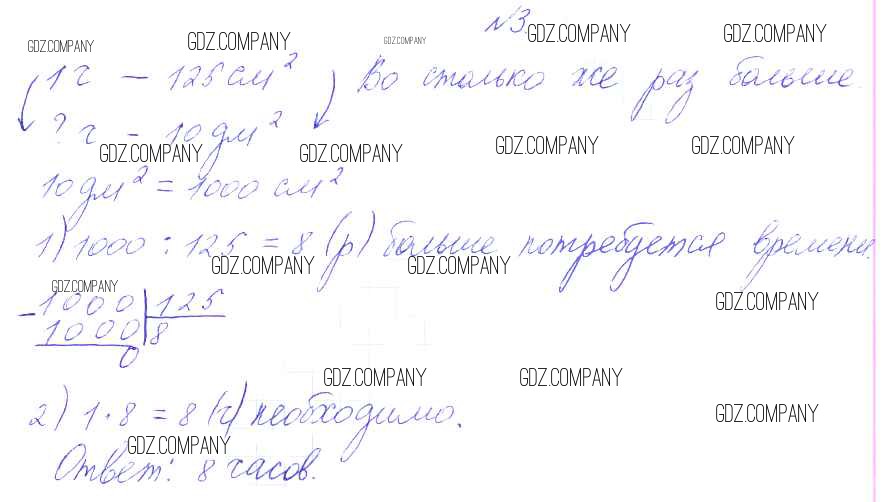 №3.
GDZ.COMPANY GDZ.COMPANY GDZ.COMPANY GDZ.COMPANY GDZ.COMPANY
1 ч – 125 см² Во столько же раз больше.
? ч – 10 дм²
GDZ.COMPANY GDZ.COMPANY GDZ.COMPANY GDZ.COMPANY
10 дм² = 1000 см²
1) 1000 : 125 = 8 (р) больше потребуется времени.
GDZ.COMPANY GDZ.COMPANY
GDZ.COMPANY GDZ.COMPANY
– 1000 | 125
1000 | 8
0
GDZ.COMPANY GDZ.COMPANY
2) 1 · 8 = 8 (ч) необходимо.
GDZ.COMPANY
GDZ.COMPANY
Ответ: 8 часов.